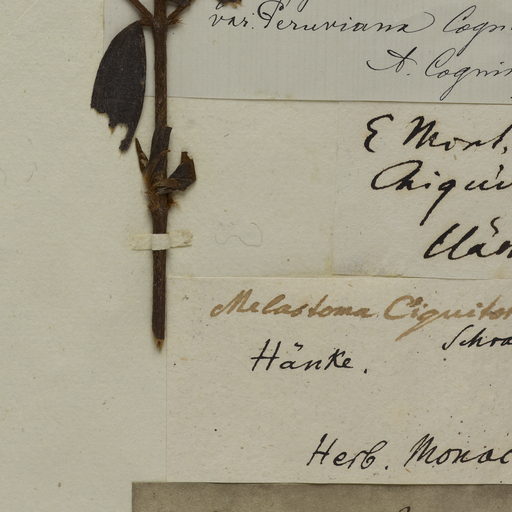 var. Peruviana Cogn
A. Cogni
E Mont.
Chiqui
Hän
Melastoma Ciquitos
Schra
Hänke.
Herb. Monac